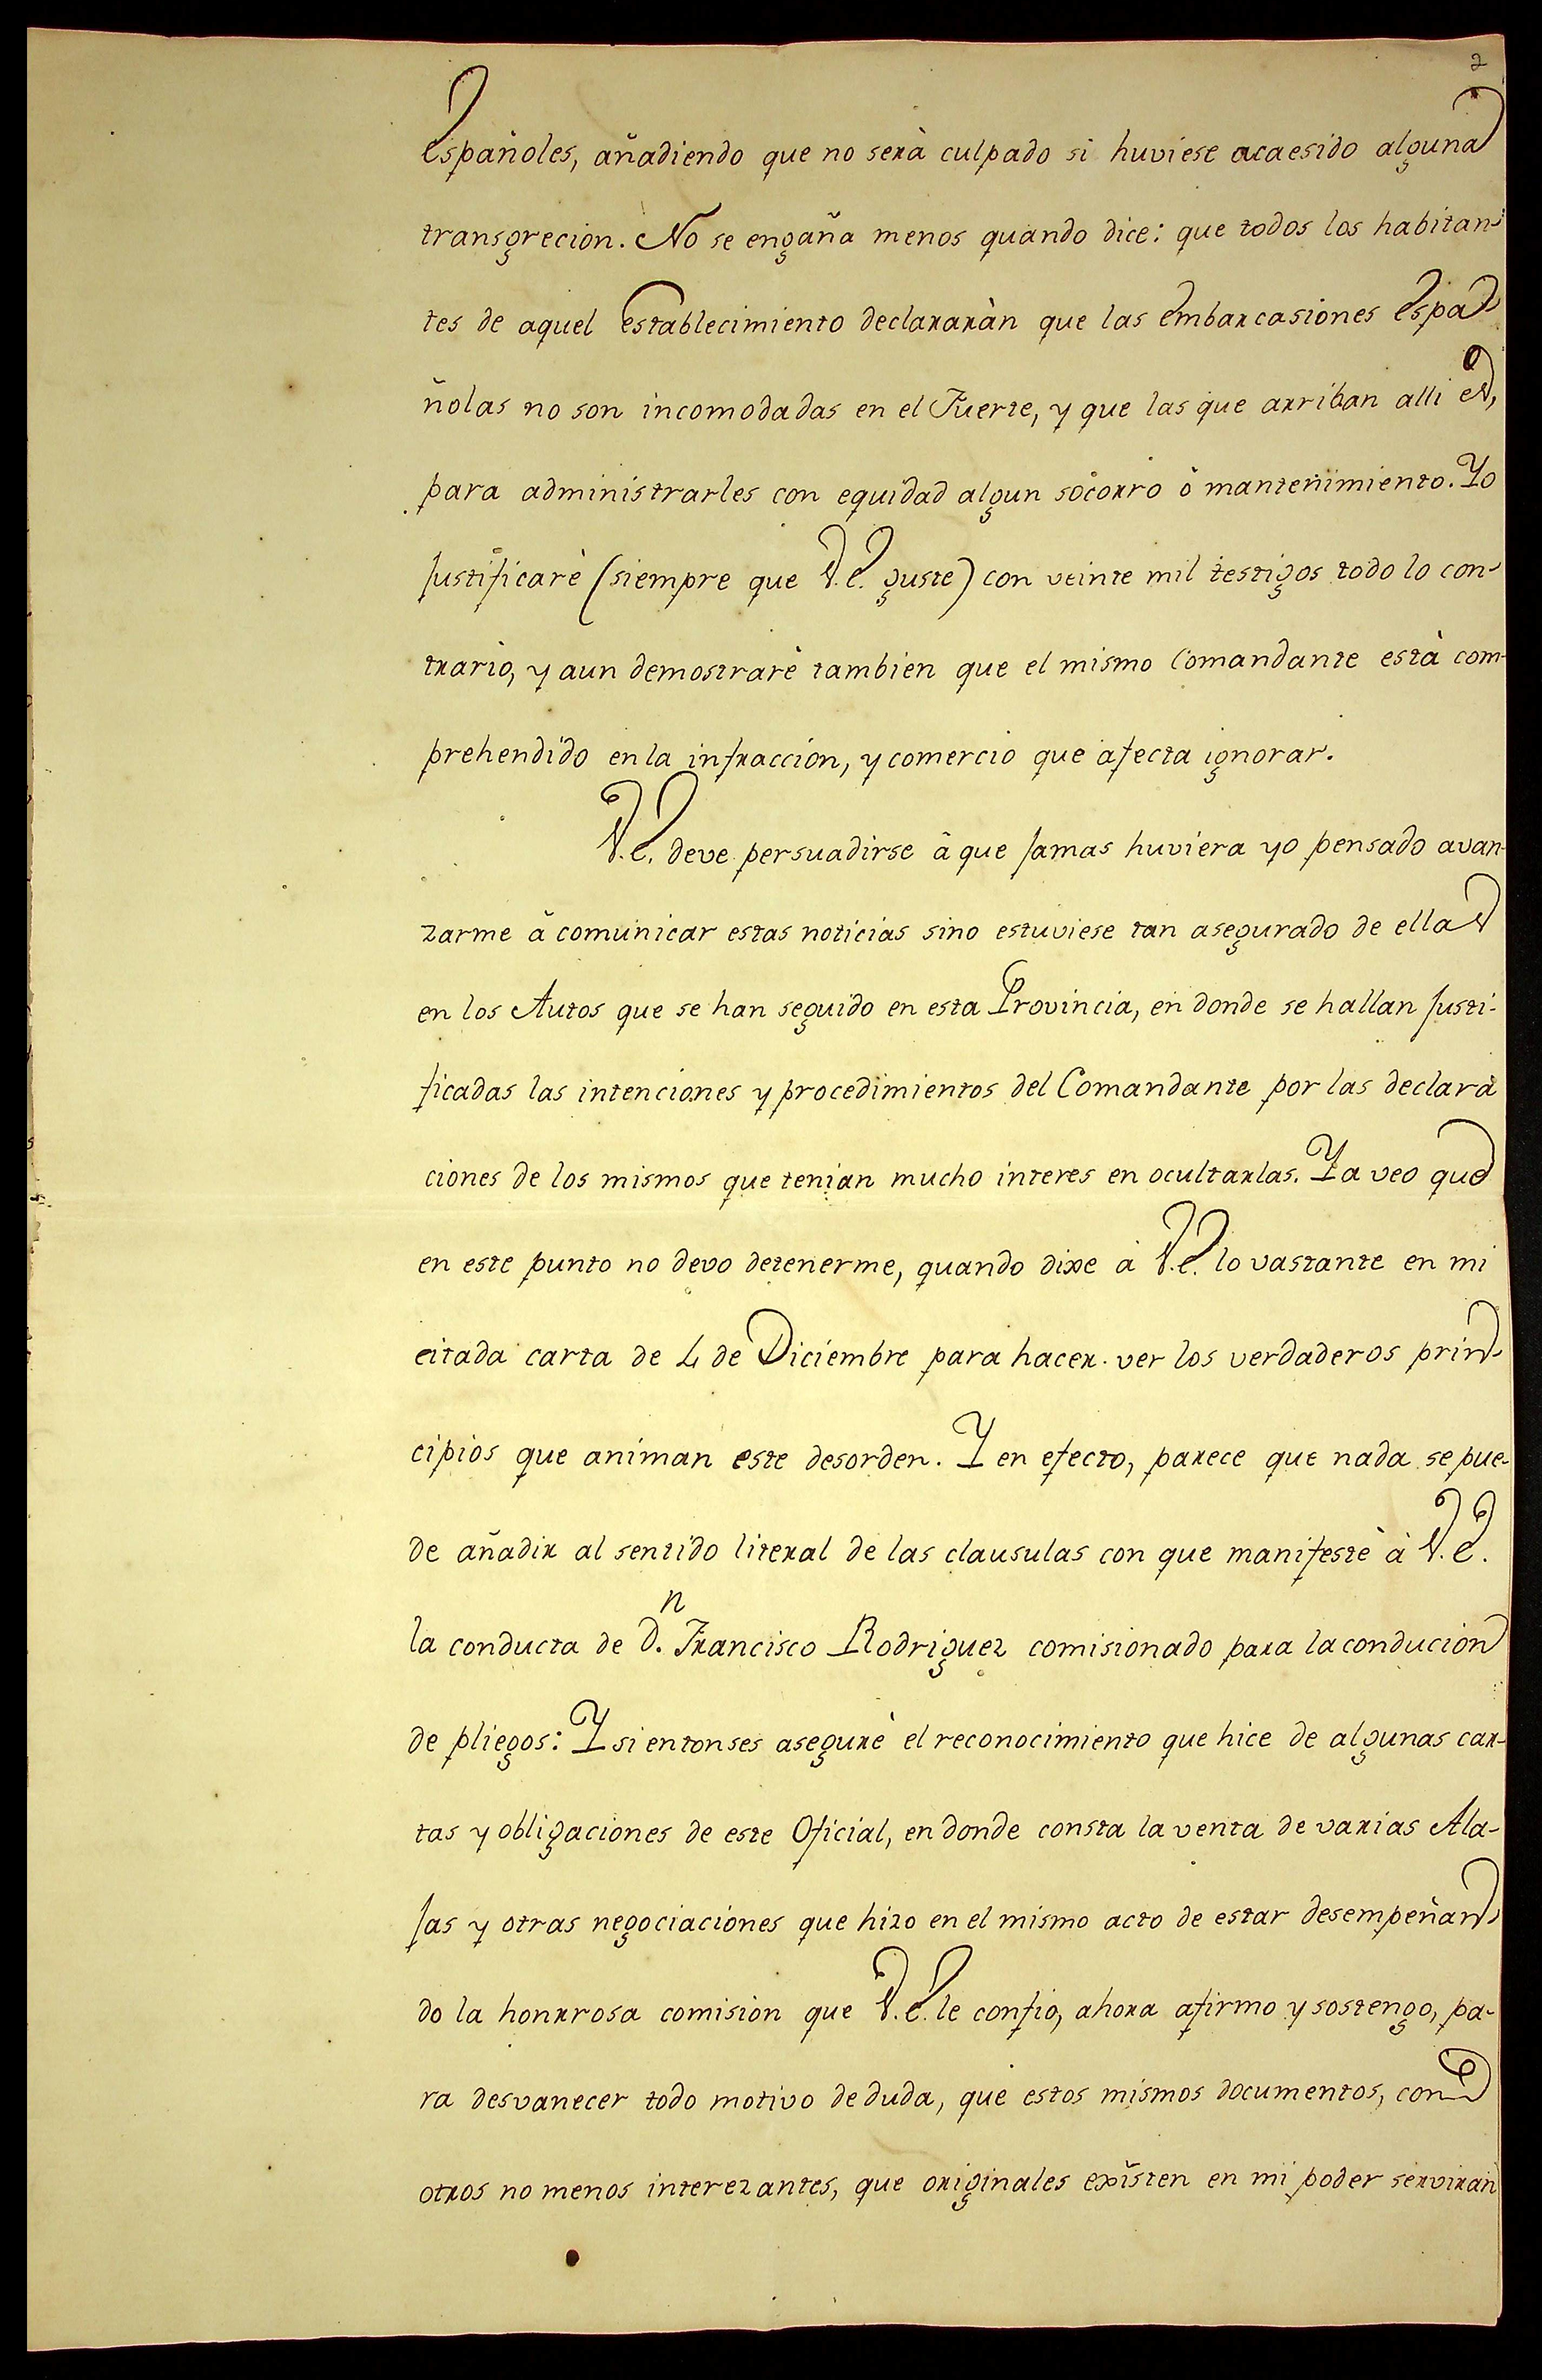 2
Españoles, añadiendo que no serà culpado si huviese acaesido alguna
transgrecion. No se engaña menos quando dice: que todos los habitan-
tes de aquel Establecimiento declararàn que las Embarcasiones Espa-
ñolas no son incomodadas en el Fuerte, y que las que arriban alli es,
para administrarles con equidad algun socorro ò mantenimiento. Yo
justificarè (siempre que V.E. guste) con veinte mil testigos todo lo con-
trario, y aun demostrarè tambien que el mismo Comandante està com-
prehendido en la infraccion, y comercio que afecta ignorar.
V.E. deve persuadirse â que jamas huviera yo pensado avan-
zarme â comunicar estas noticias sino estuviese tan asegurado de ellas
en los Autos que se han seguido en esta Provincia, en donde se hallan justi-
ficadas las intenciones y procedimientos del Comandante por las declara
ciones de los mismos que tenian mucho interes en ocultarlas. Ya veo que
en este punto no devo detenerme, quando dixe à V.E. lo vastante en mi
citada carta de 4 de Diciembre para hacer ver los verdaderos prin-
cipios que animan este desorden. Y en efecto, parece que nada se pue-
de añadir al sentido literal de las clausulas con que manifestè à V.E.
la conducta de D.n Francisco Rodriguez comisionado para la conducion
de pliegos: Y si entonses asegurè el reconocimiento que hice de algunas car-
tas y obligaciones de este Oficial, en donde consta la venta de varias Ala-
jas y otras negociaciones que hizo en el mismo acto de estar desempeñan-
do la honrrosa comision que V.E. le confio, ahora afirmo y sostengo, pa-
ra desvanecer todo motivo de duda, que estos mismos documentos, con
otros no menos interezantes, que originales existen en mi poder serviran